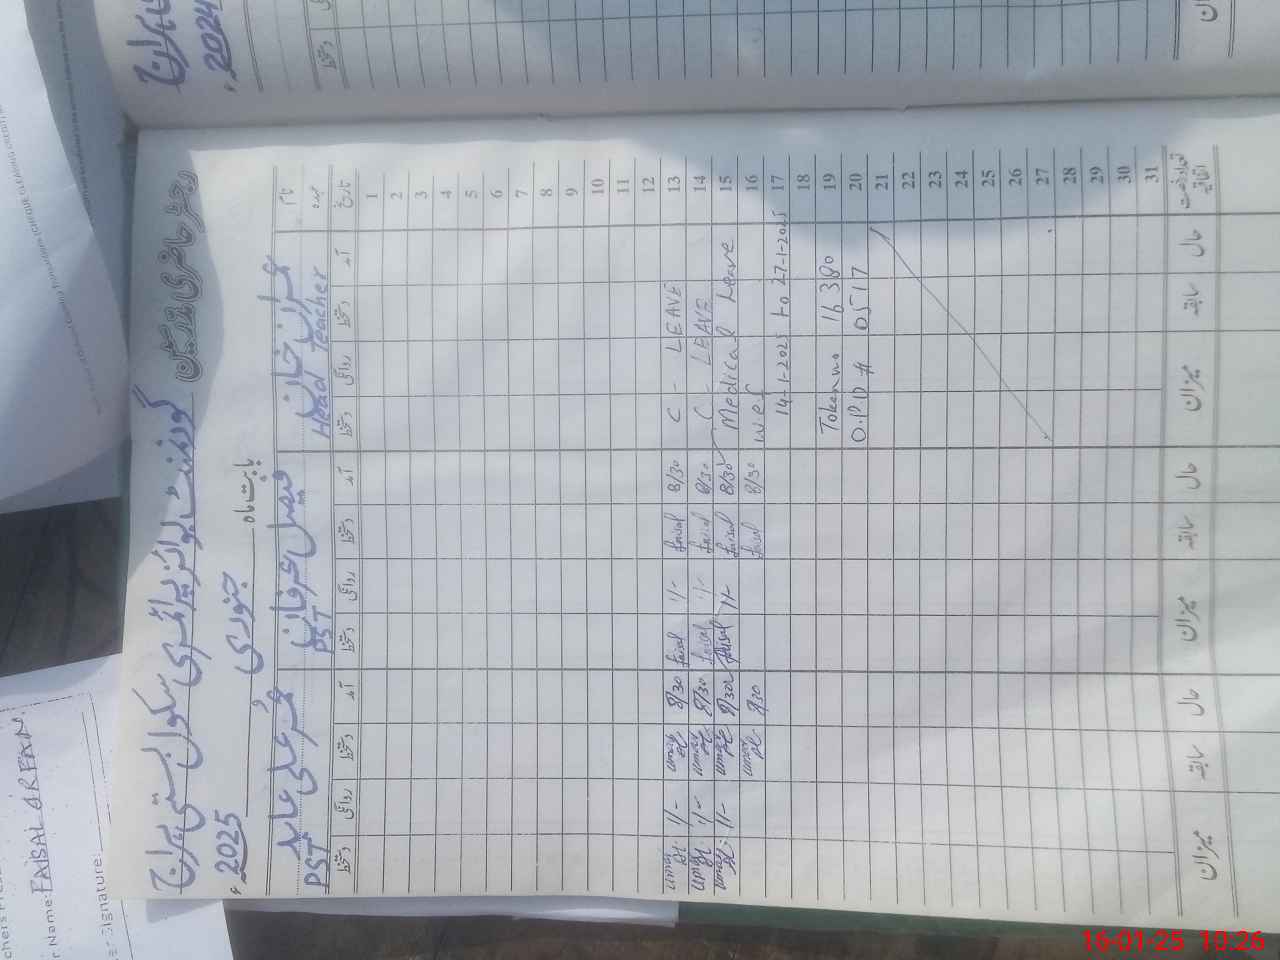 رجسٹر حاضری مدرسین
گورنمنٹ بوائز پرائمری سکول بستی پراچ
بابت ماہ جنوری 2025ء
نام عمران خان فیصل عرفان عمر علی عابد
عہدہ Head Teacher PST PST
تاریخ آمد دستخط روانگی دستخط آمد دستخط روانگی دستخط آمد دستخط روانگی دستخط
1
2
3
4
5
6
7
8
9
10
11
12
13 C - LEAVE 8/30 faisal 1/- faisal 8/30 umar 1/- umar
14 C - LEAVE 8/30 faisal 1/- faisal 8/30 umar 1/- umar
15 Medical Leave 8/30 faisal 1/- faisal 8/30 umar 1/- umar
16 w.e.f 8/30 faisal 8/30 umar
17 14-1-2025 to 27-1-2025
18
19 Token no 16380
20 O.P.D # 05517
21
22
23
24
25
26
27
28
29
30
31
تعداد رخصت اتفاقیہ حال سابقہ میزان حال سابقہ میزان حال سابقہ میزان
2024
Name: FAISAL ARFAN.
Signature:
16-01-25 10:26